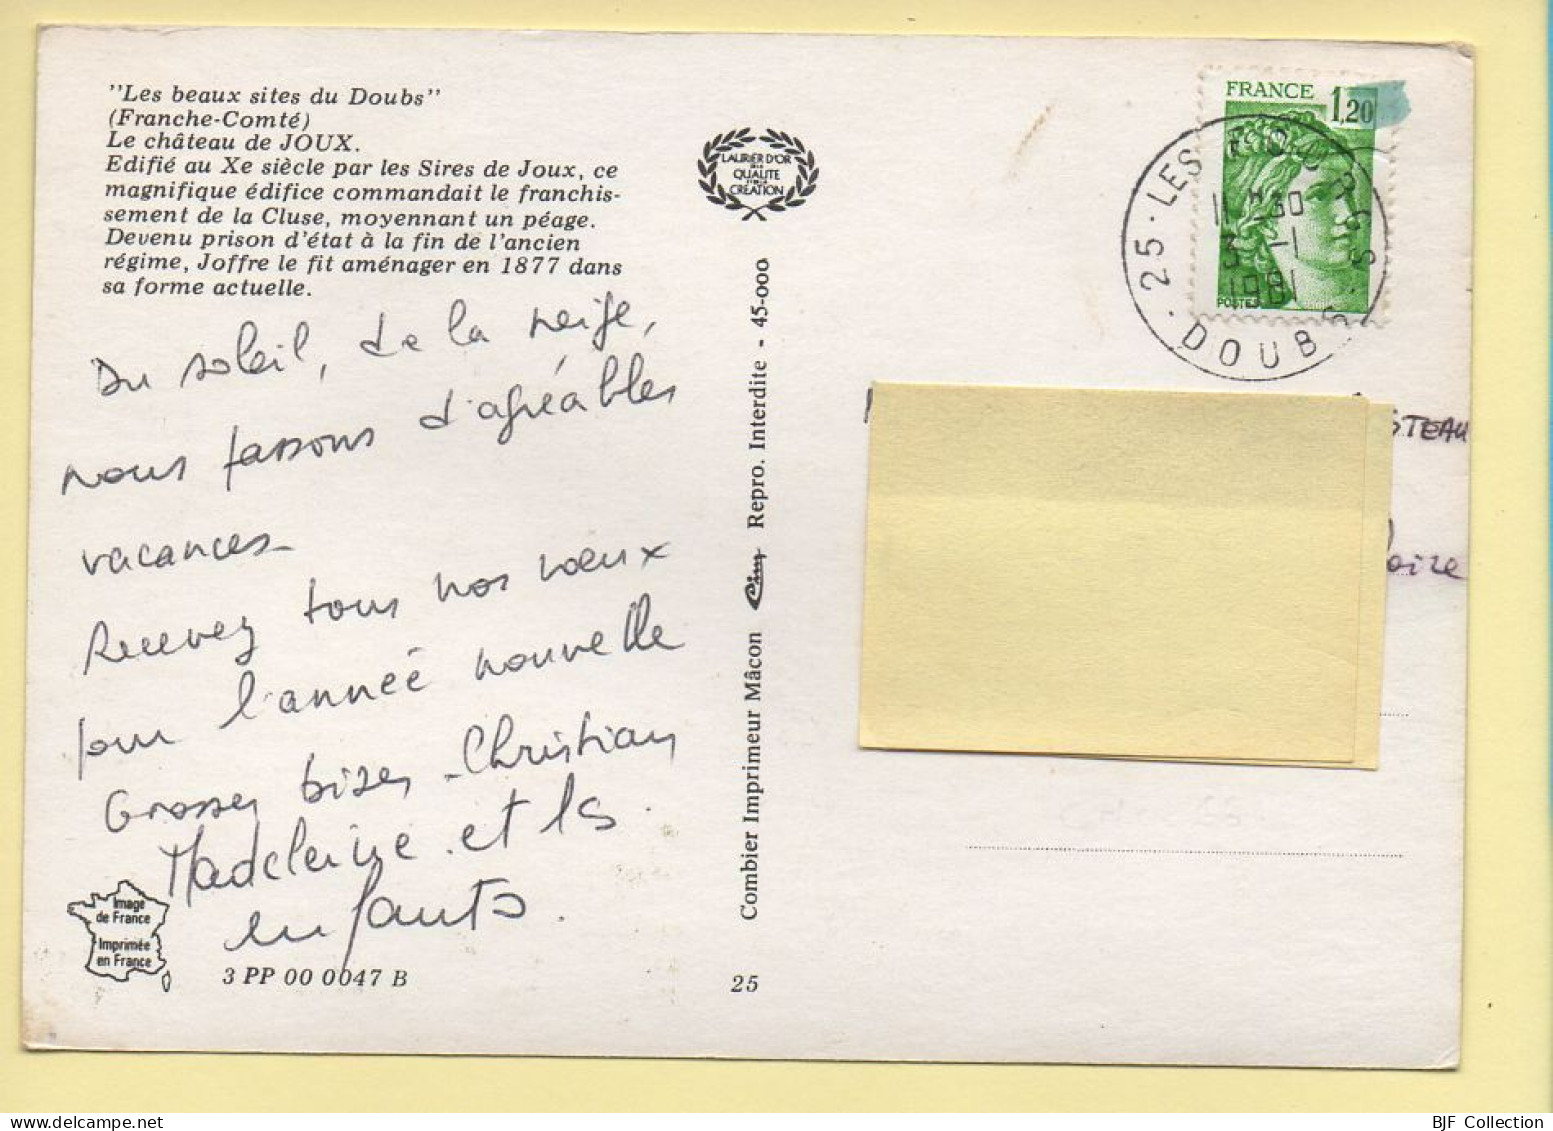 "Les beaux sites du Doubs"
(Franche-Comté)
Le château de JOUX.
Edifié au Xe siècle par les Sires de Joux, ce
magnifique édifice commandait le franchis-
sement de la Cluse, moyennant un péage.
Devenu prison d'état à la fin de l'ancien
régime, Joffre le fit aménager en 1877 dans
sa forme actuelle.
Du soleil, de la neige,
nous passons d'agréables
vacances
Recevez tous nos vœux
pour l'année nouvelle
Grosses bises Christian
Madeleine et les
enfants.
Image
de France
Imprimée
en France
3 PP 00 0047 B
LAURIER D'OR
DE LA
QUALITE
CREATION
Combier Imprimeur Mâcon Cim Repro. Interdite - 45-000
25
FRANCE 1,20
POSTES
25 · LES FOURGS ·
11 H 30
3 -1
1981
DOUBS
STEAU
oire
BJF Collection